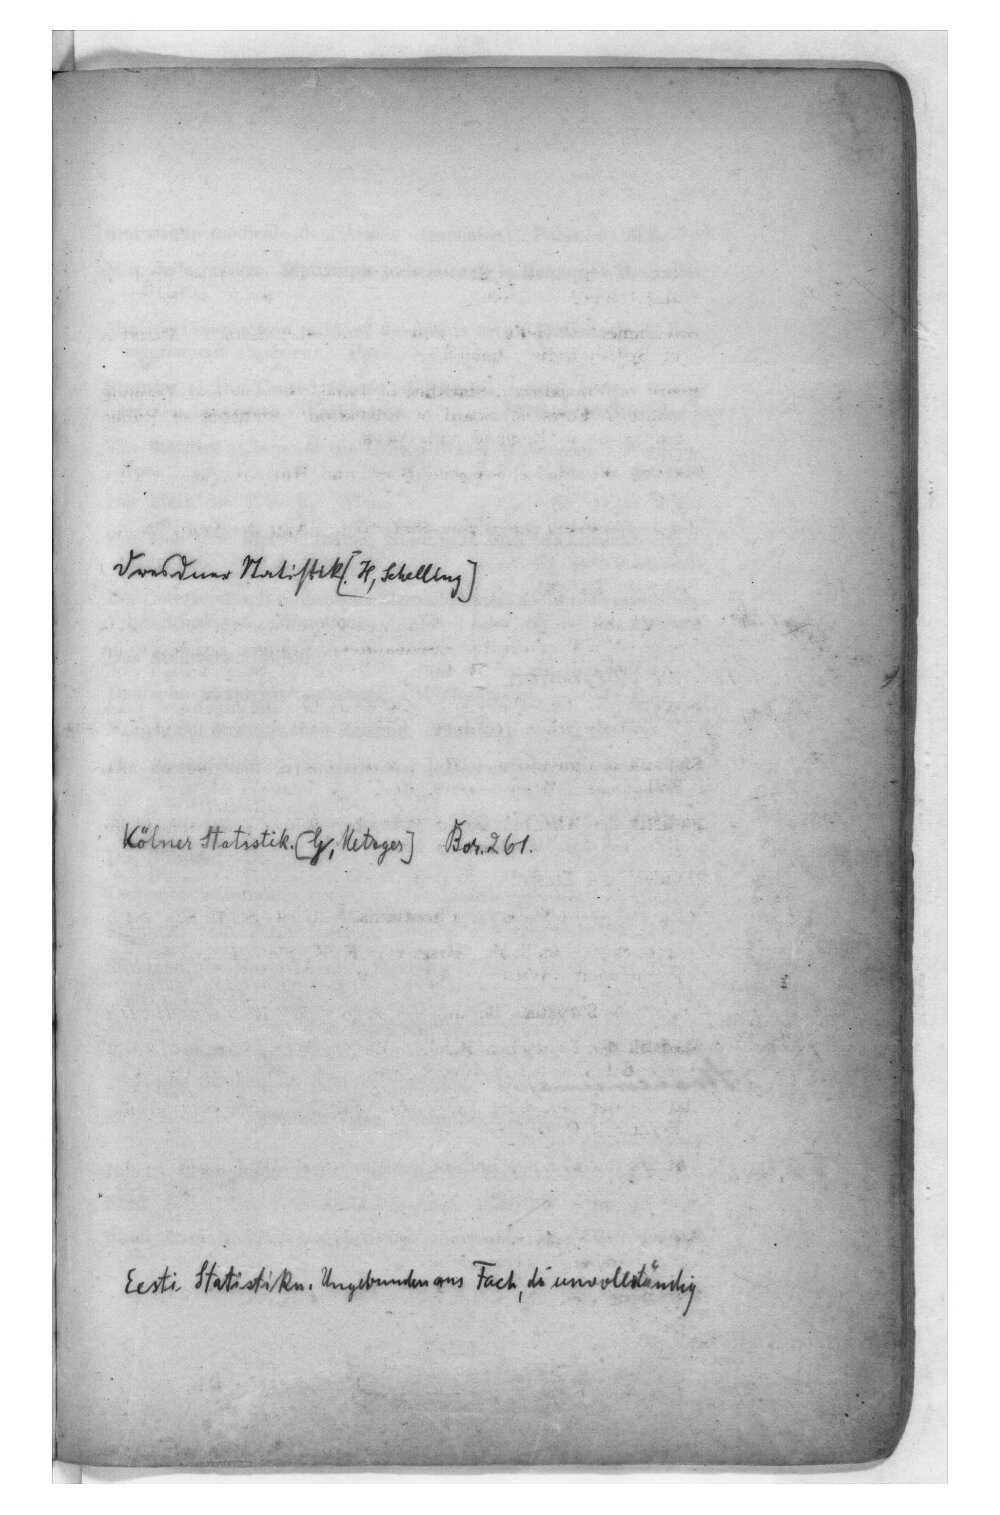 Dresdner Statistik. [H, Schelling]
Kölner Statistik. [G, Metzger] Bor. 261.
Eesti Statistika. Ungebunden ans Fach, da unvollständig